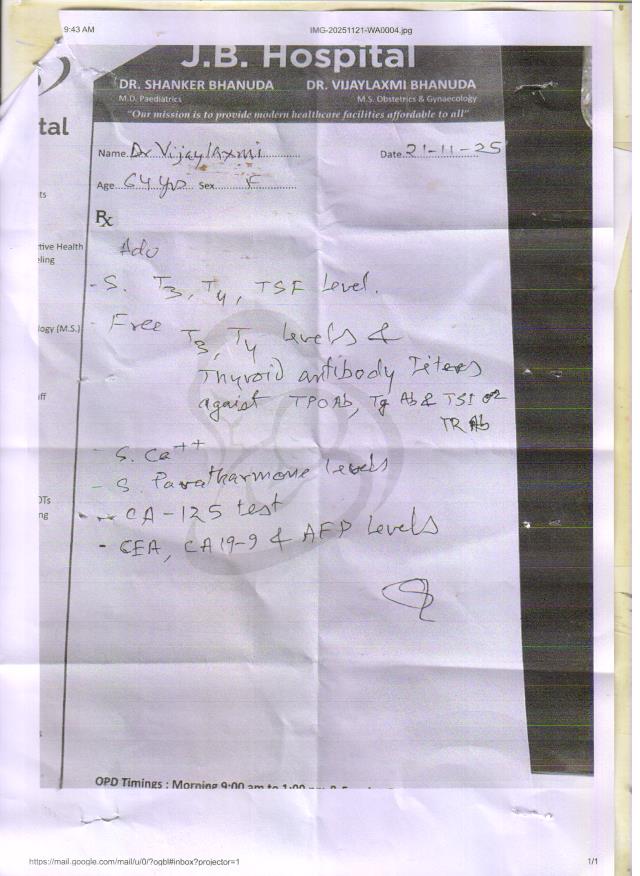 9:43 AM IMG-20251121-WA0004.jpg
J.B. Hospital
DR. SHANKER BHANUDA DR. VIJAYLAXMI BHANUDA
M.D. Paediatrics M.S. Obstetrics & Gynaecology
"Our mission is to provide modern healthcare facilities affordable to all"
tal
Name Dr Vijaylaxmi Date 21-11-25
Age 64 yrs Sex F
ts
Rx
tive Health
eling
Adv
- S. T3, T4, TSF Level.
logy (M.S.)
- Free T3, T4 levels &
Thyroid antibody Titers
aff
agaist TPOAb, Tg Ab & TSI or
TR Ab
- S. Ca++
- S. Paratharmone levels
OTs
ng
- CA-125 test
- CEA, CA19-9 & AFP Levels
OPD Timings : Morning 9:00 am to 1:00 pm &
https://mail.google.com/mail/u/0/?ogbl#inbox?projector=1 1/1